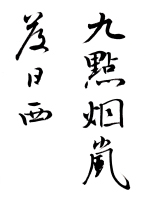 九點烟嵐
落日西